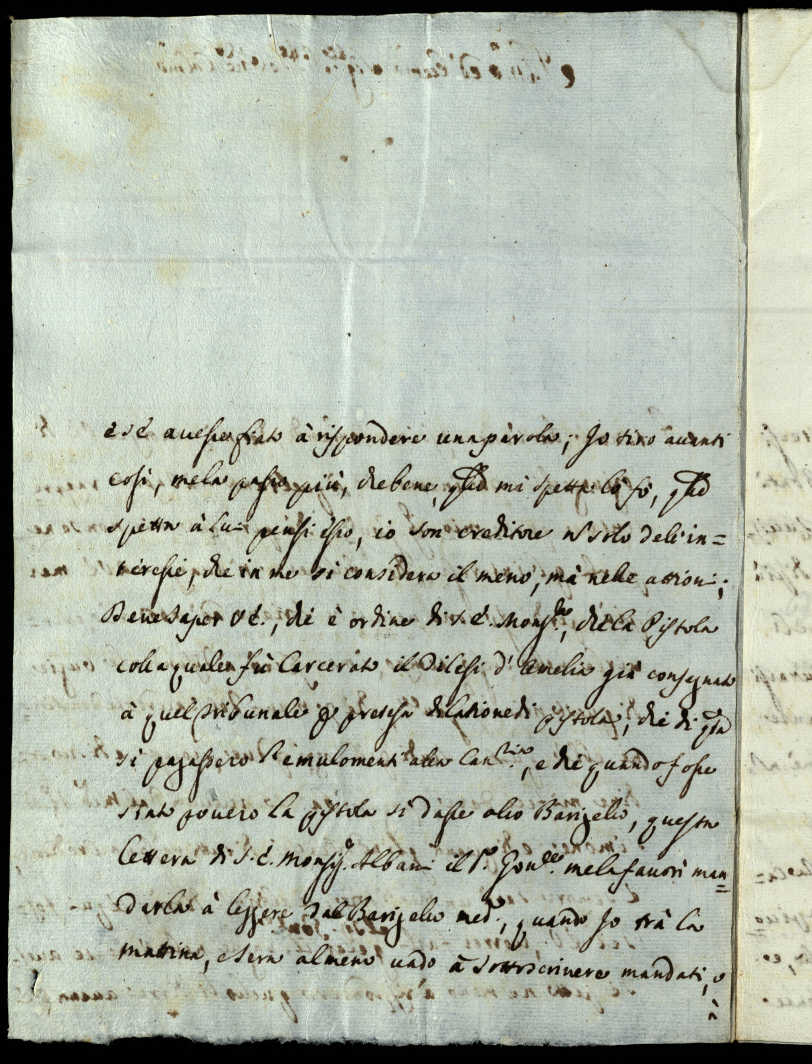 è s'è avesse fiato à rispondere una parola; Io tiro avanti
cosi, me la passo più, che bene, qllo mi spetta lo fò, qllo
spetta à Lui pensi esso, io son creditore nò solo dell'in=
teresse, che in me si considera il meno, mà nelle attioni;
Deve saper V.E., che è ordine di S.E. Monsre, che la Pistola
colla quale fù Carcerato il Dilesi d'Amelia già consegnato
à quel tribunale p pretesa delatione di pistola, che di qsta
si pagassero l'emulomenti alla Canria, e che quando fosse
stato povero la pistola si dasse allo Barigello, questa
lettera di S.E. Monsig. Albani il Sr. Govre. me la favorì man=
darla à leggere dal Barigello med., quando Io trà la
mattina, e sera almeno vado à sottoscrivere mandati, o
à